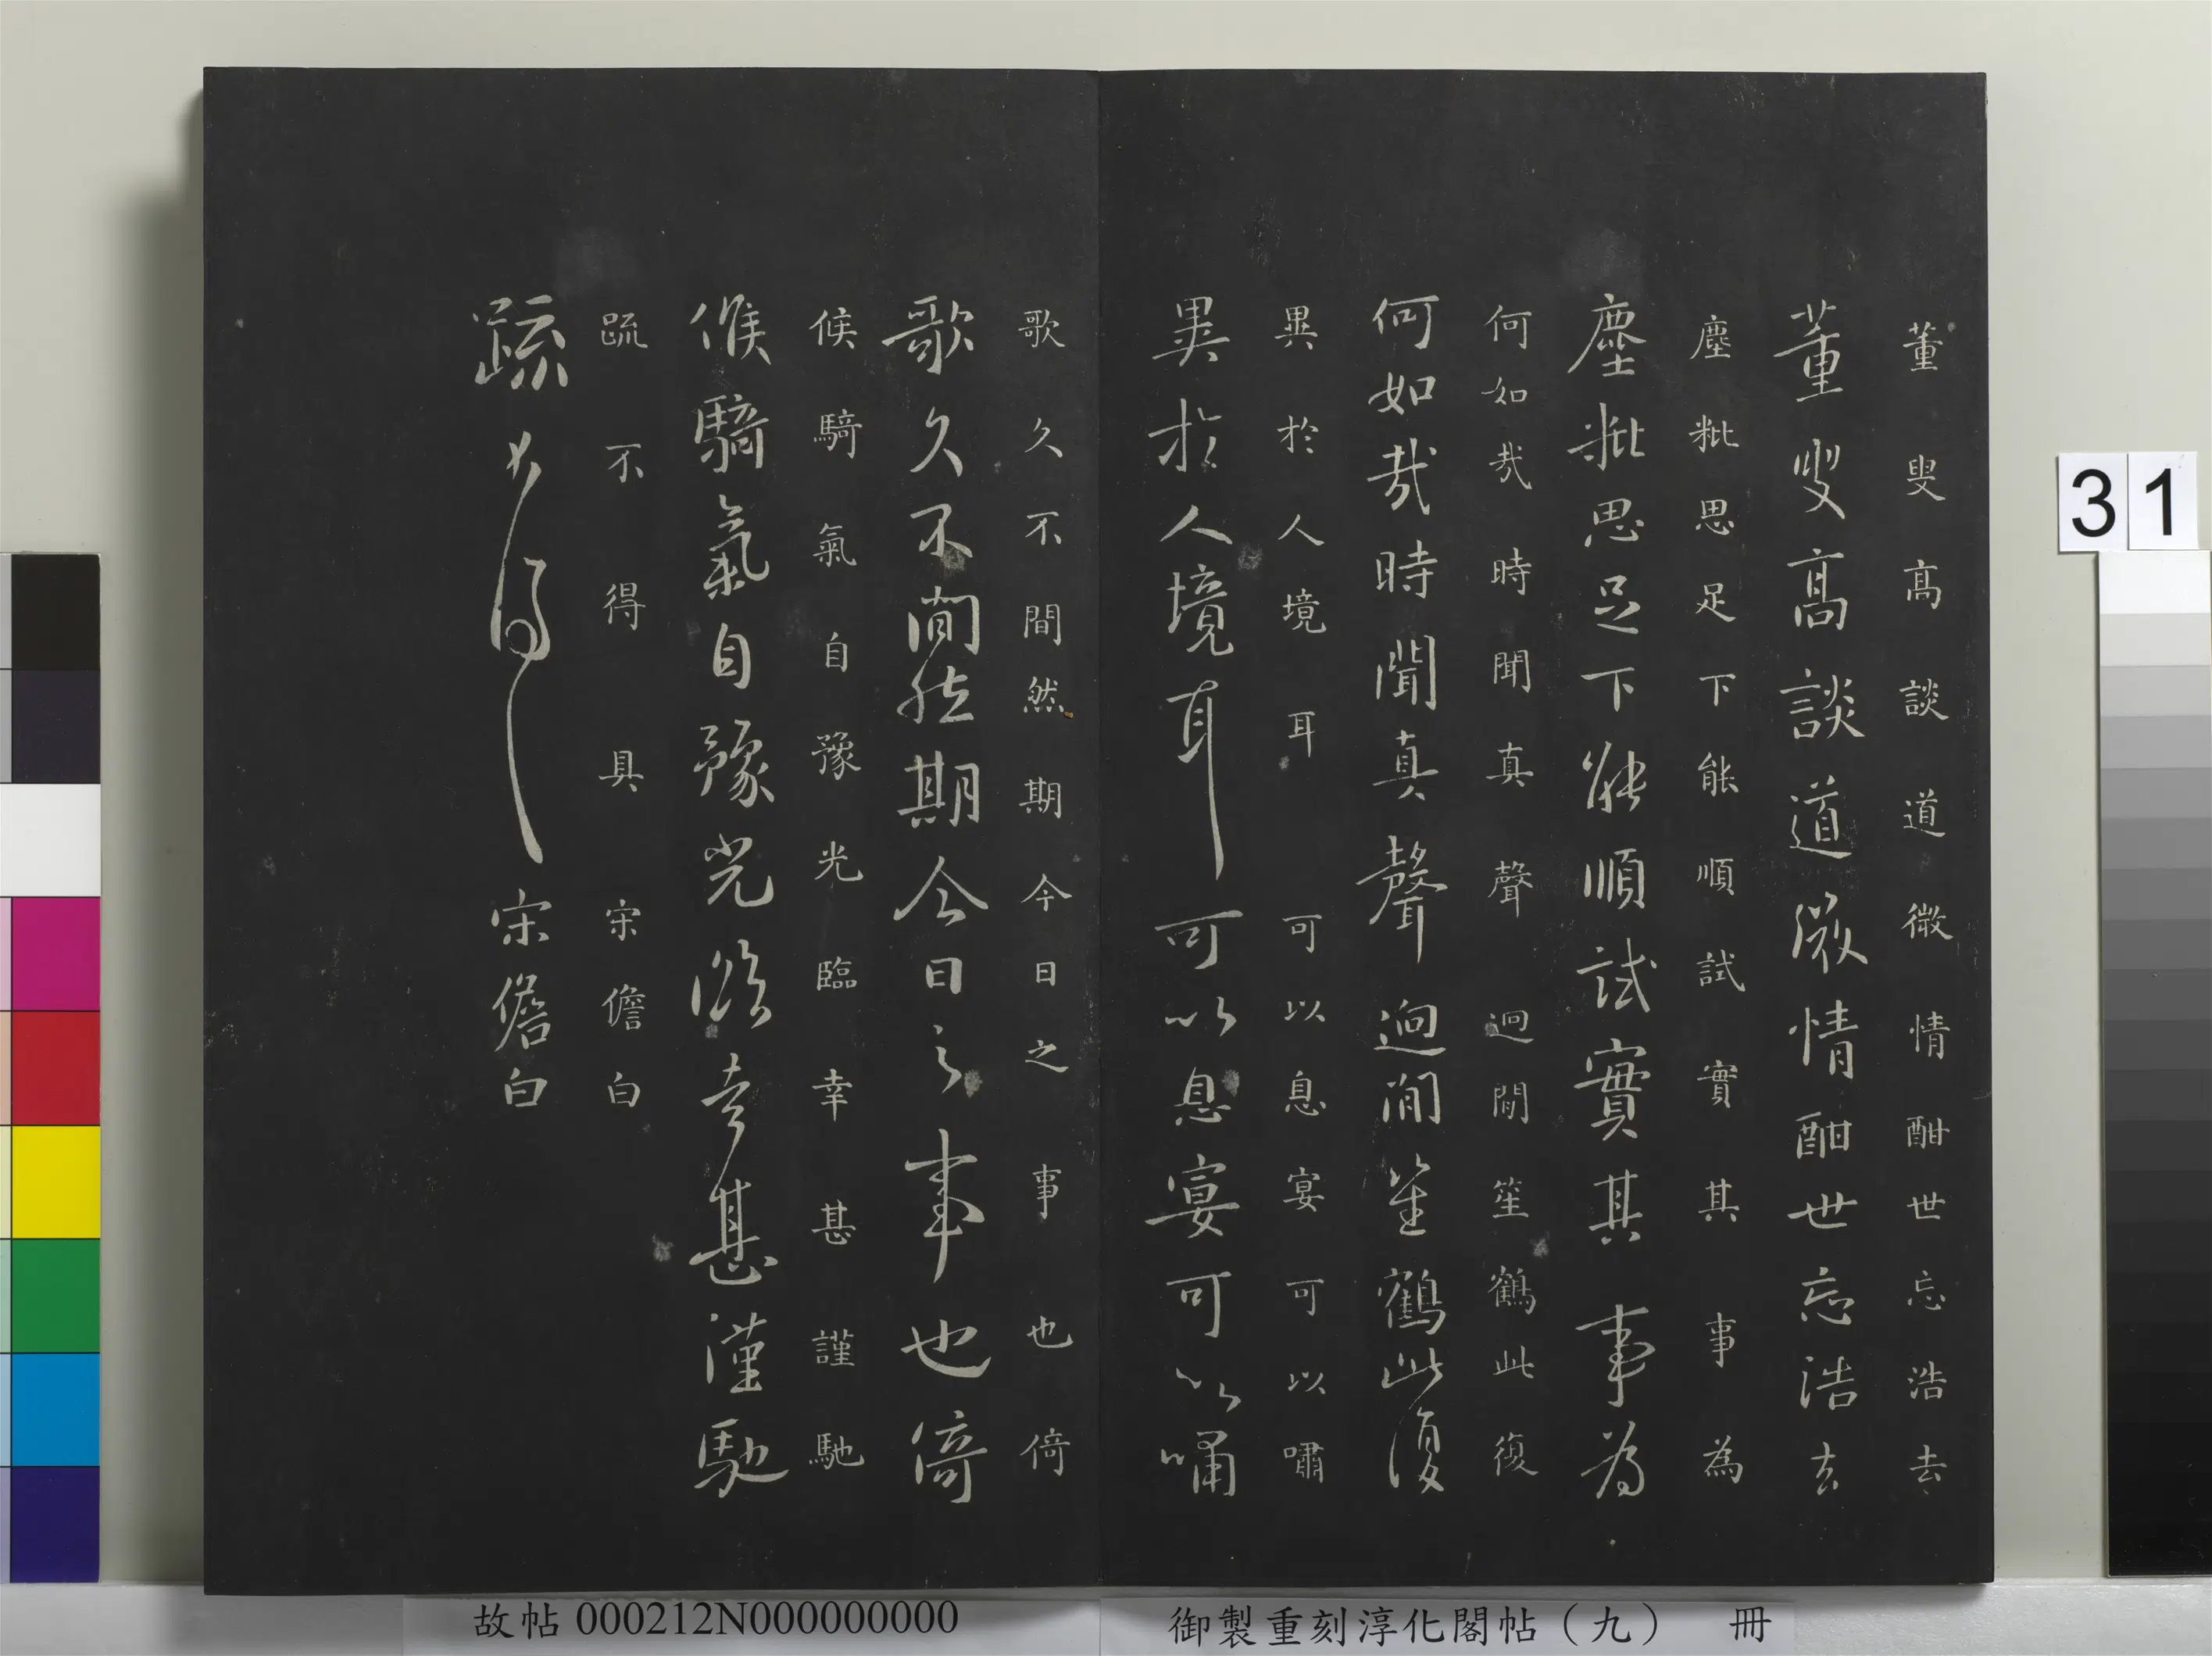 董叟高談道微情酣世忘浩去
董叟高談道微情酣世忘浩去
塵粃思足下能順試實其事為
塵粃思足下能順試實其事為
何如哉時聞真聲迥間笙鶴此復
何如哉時聞真聲迥間笙鶴此復
異於人境耳可以息宴可以嘯
異於人境耳可以息宴可以嘯
歌久不間然期今日之事也倚
歌久不間然期今日之事也倚
候騎氣自豫光臨幸甚謹馳
候騎氣自豫光臨幸甚謹馳
疏不得具宋儋白
疏不得具宋儋白
31
故帖000212N000000000
御製重刻淳化閣帖（九） 冊